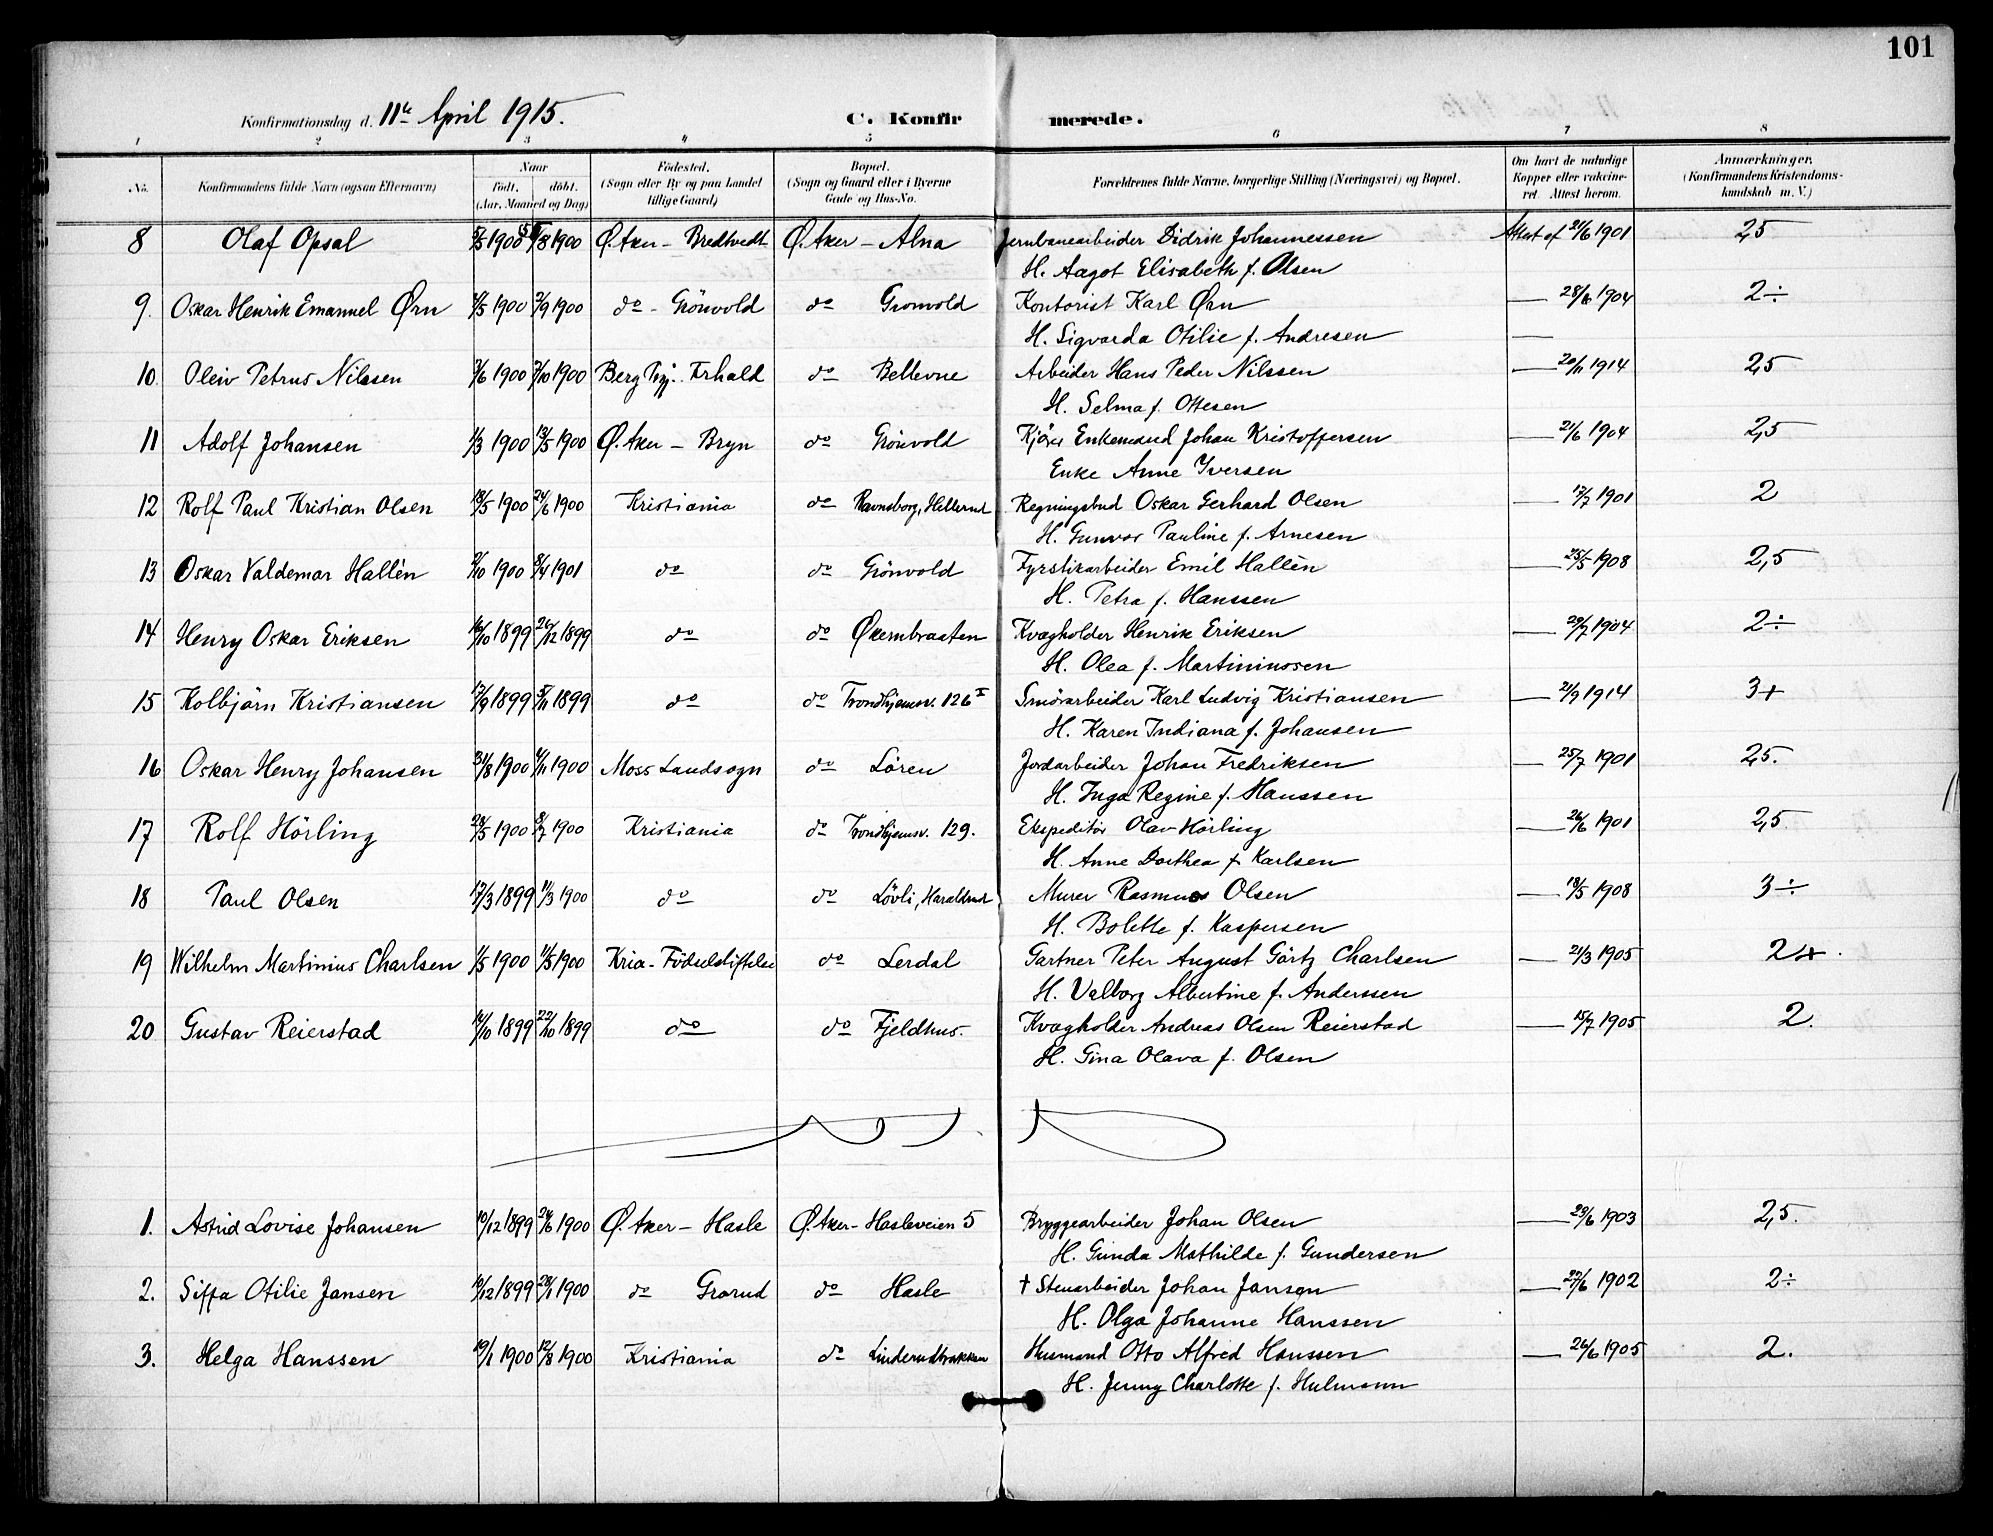 101
Konfirmationsdag d. 11te April 1915.
C. Konfirmerede.
1 2 3 4 5 6 7 8
No. Konfirmandens fulde Navn (ogsaa Efternavn) Naar Födt. döbt. (Aar, Maaned og Dag) Födested. (Sogn eller By og paa Landet tillige Gaard) Bopæl. (Sogn og Gaard eller i Byerne Gade og Hus-No. Forældrenes fulde Navne, borgerlige Stilling (Næringsvei) og Bopæl. Om havt de naturlige Kopper eller vakcineret. Attest herom. Anmærkninger. (Konfirmandens Kristendomskundskab m. V.)
8 Olaf Opsal 1900 1900 Ø. Aker - Bredtvedt Ø. Aker - Alna Jernbanearbeider Didrik Johannessen Attest af 21/6 1901 2,5
H. Aagot Elisabeth f. Olsen
9. Oskar Henrik Emanuel Ørn 1900 2/9 1900 do - Grönvold do Gronvold Kontorist Karl Ørn — 28/6 1904 2÷
H. Sigvarda Otilie f. Andresen
10. Oleiv Petrus Nilssen 1900 7/10 1900 Berg Prgj. Erhald do Bellevue Arbeider Hans Peder Nilssen — 20/11 1914 2,5
H. Selma f. Ottesen
11 Adolf Johansen 1/3 1900 13/5 1900 Ø. Aker - Bryn do Grönvold Kjörer Enkemand Johan Kristoffersen — 21/6 1904 2,5
Enke Anne Iversen
12 Rolf Paul Kristian Olsen 18/5 1900 24/6 1900 Kristiania do Ravnsborg, Hellerud Regningsbud Oskar Gerhard Olsen — 17/7 1901 2
H. Gunvor Pauline f. Arnesen
13 Oskar Valdemar Hallén 2/10 1900 8/4 1901 do do Grönvold Fyrstikarbeider Emil Hallén — 25/5 1908 2,5
H. Petra f. Hanssen
14 Henry Oskar Eriksen 16/10 1899 26/12 1899 do do Økernbraaten Kvægholder Henrik Eriksen — 29/7 1904 2÷
H. Olea f. Martiniussen
15 Kolbjörn Kristiansen 17/9 1899 5/11 1899 do do Trondhjemsv. 126 I Smörarbeider Karl Ludvig Kristiansen — 21/9 1914 3+
H. Karen Indiana f. Johansen
16 Oskar Henry Johansen 31/8 1900 4/11 1900 Moss Landsogn do Lören Jordarbeider Johan Fredriksen — 25/7 1901 2,5.
H. Inga Regine f. Hanssen
17 Rolf Hörling 24/5 1900 8/7 1900 Kristiania do Trondhjemsv. 129. Ekspeditör Olav Hörling — 26/6 1901 2,5.
H. Anne Dorthea f. Karlsen
18 Paul Olsen 17/3 1899 11/3 1900 do do Lövli, Haraldrud Murer Rasmus Olsen — 18/5 1908 3÷
H. Bolette f. Kaspersen
19 Wilhelm Martinius Charlsen 1/5 1900 11/5 1900 Kria - Födselsstiftelse do Lerdal Gartner Peter August Görtz Charlsen — 21/3 1905 2+.
H. Valborg Albertine f. Anderssen
20 Gustav Reierstad 14/10 1899 22/10 1899 do do Fjeldhus. Kvægholder Andreas Olsen Reierstad — 15/7 1905 2.
H. Gina Olava f. Olsen
1. Astrid Lovise Johansen 10/12 1899 24/6 1900 Ø. Aker - Hasle Ø. Aker - Hasleveien 5 Bryggearbeider Johan Olsen — 23/6 1903 2,5.
H. Gunda Mathilde f. Gundersen
2. Siffa Otilie Jansen 10/12 1899 28/1 1900 do Grorud do Hasle † Stenarbeider Johan Jansen — 27/6 1902 2÷
H. Olga Johanne Hanssen
3. Helga Hanssen 19/1 1900 12/8 1900 Kristiania do Linderudbakken Husmand Otto Alfred Hanssen — 26/6 1905 2.
H. Jenny Charlotte f. Hulmann